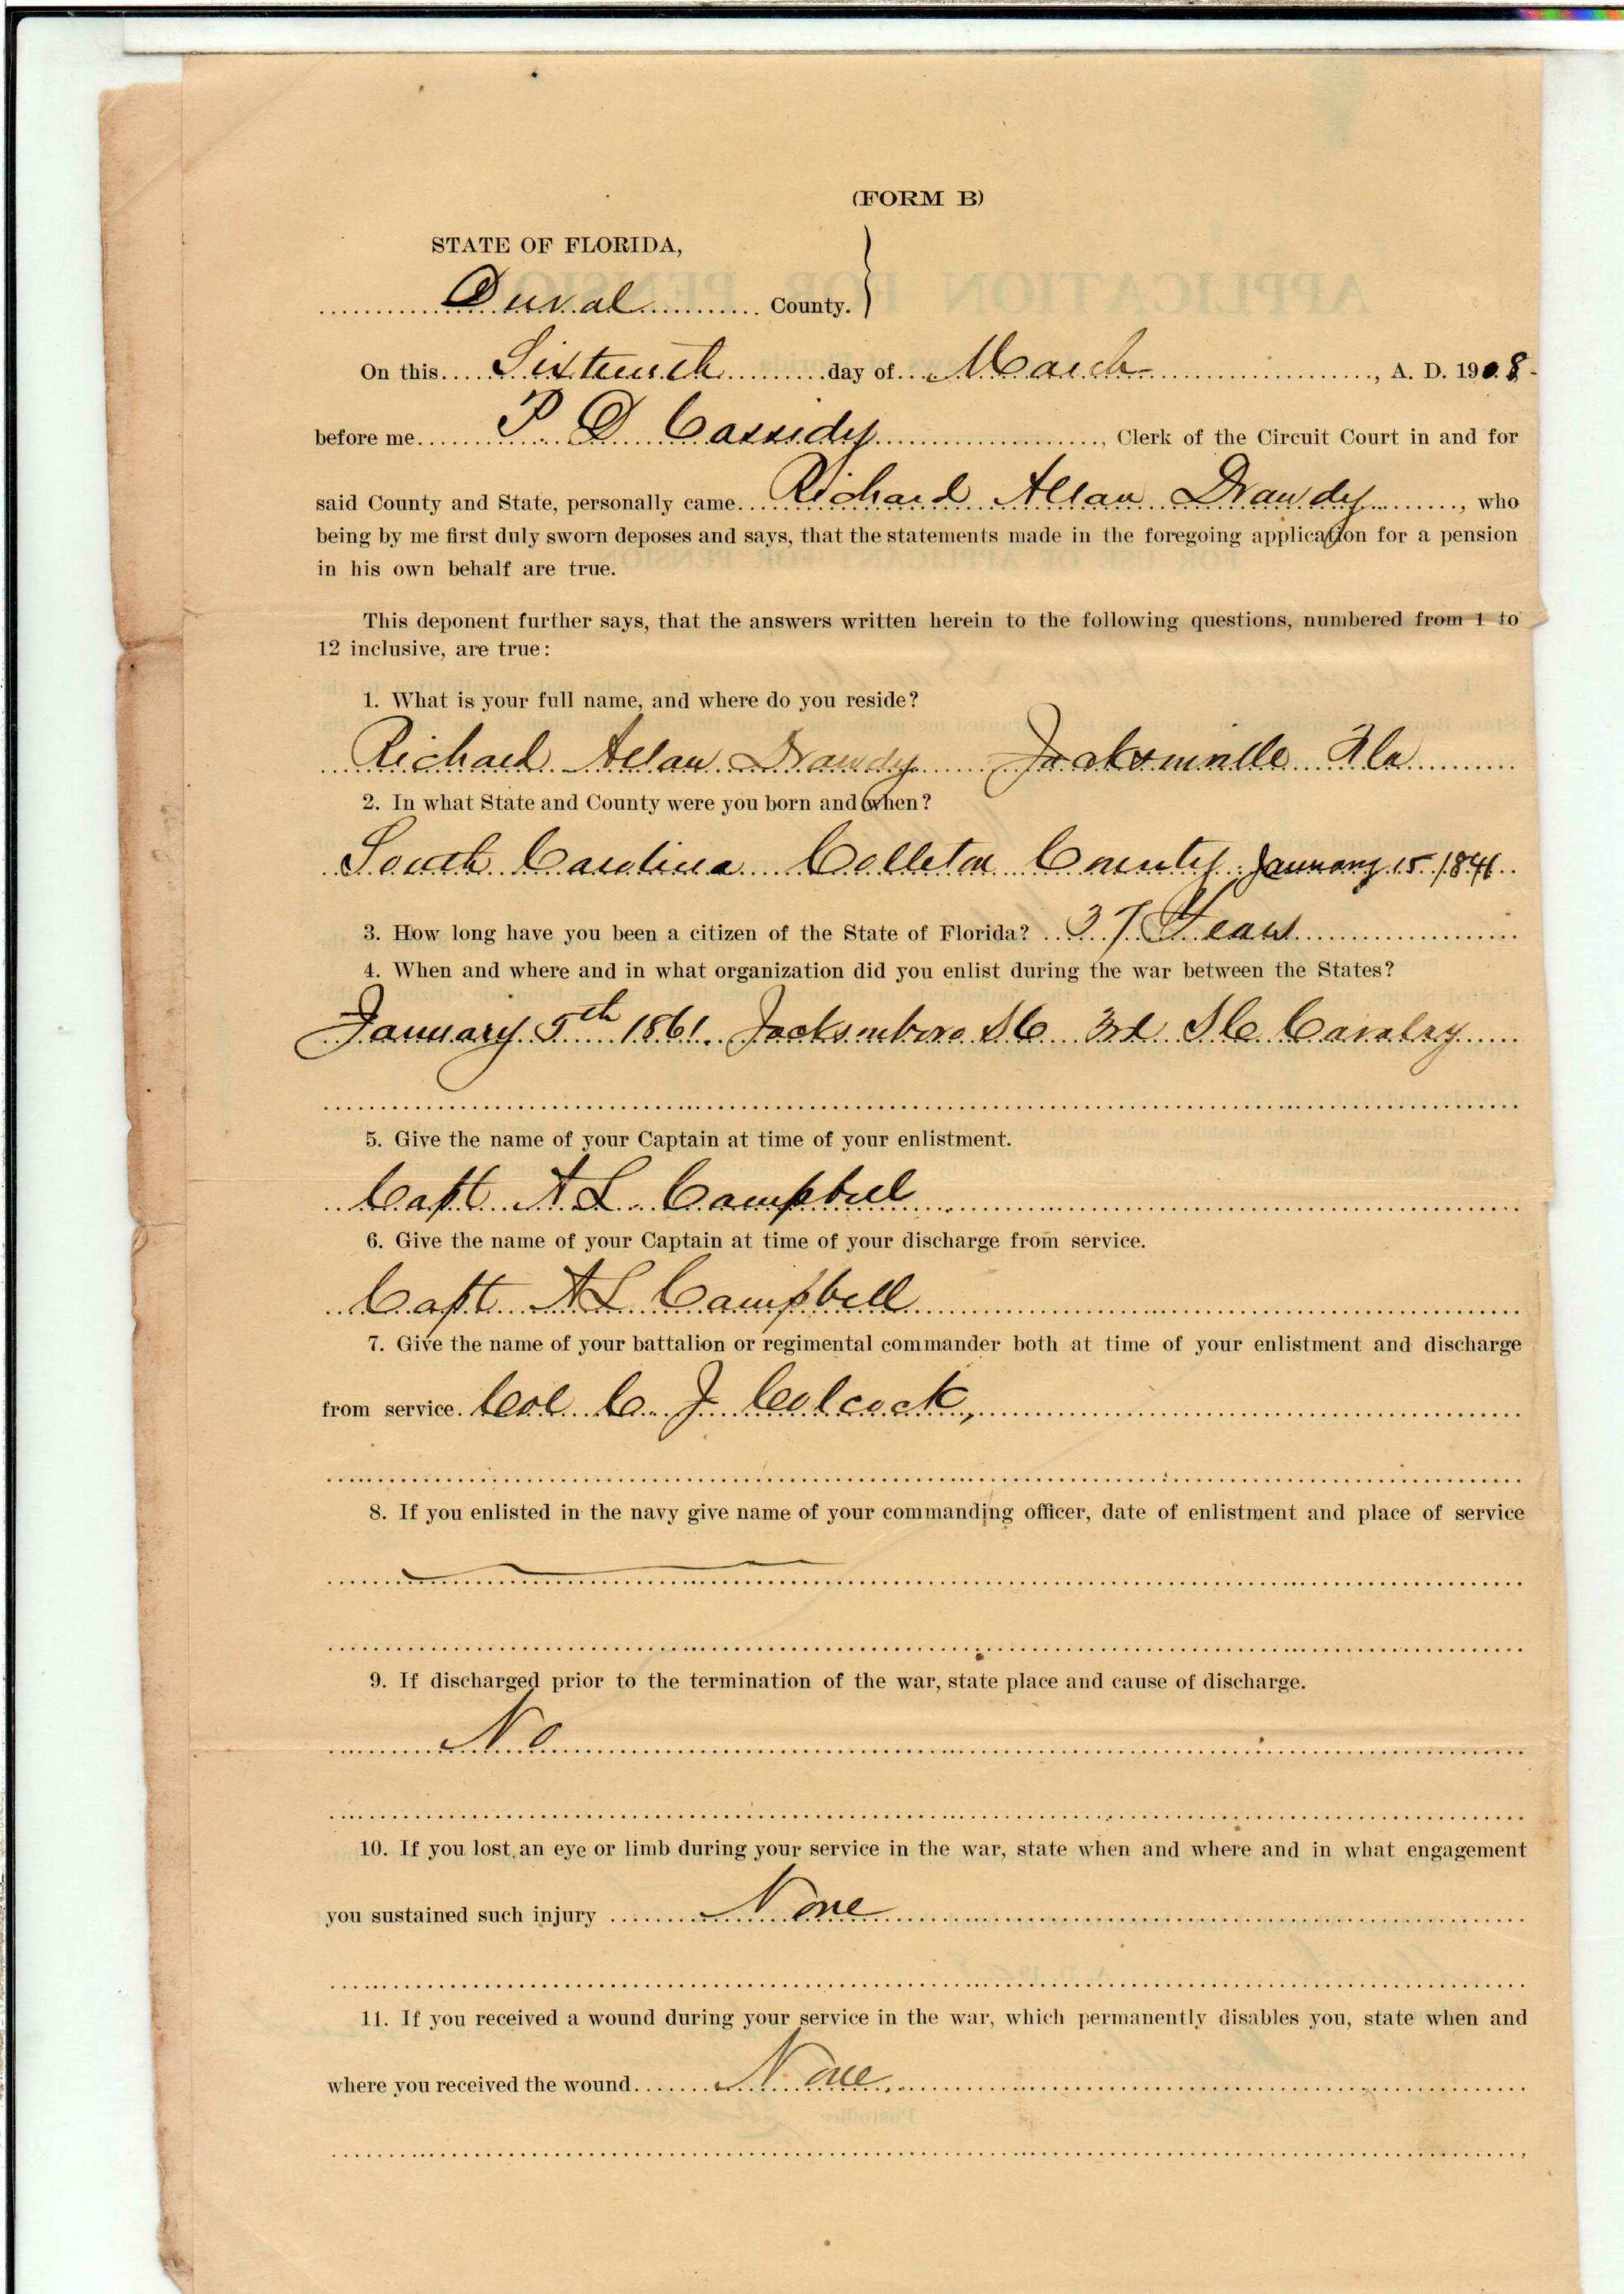 (FORM B)
STATE OF FLORIDA,
Duval County.
On this Sixteenth day of March, A. D. 1908.
before me P D Cassidy, Clerk of the Circuit Court in and for
said County and State, personally came Richard Allan Drawdy, who
being by me first duly sworn deposes and says, that the statements made in the foregoing application for a pension
in his own behalf are true.
This deponent further says, that the answers written herein to the following questions, numbered from 1 to
12 inclusive, are true:
1. What is your full name, and where do you reside?
Richard Allan Drawdy Jacksonville Fla
2. In what State and County were you born and when?
South Carolina Colleton County January 15 1841
3. How long have you been a citizen of the State of Florida? 37 Years
4. When and where and in what organization did you enlist during the war between the States?
January 5th 1861 Jacksonboro SC 3rd SC Cavalry
5. Give the name of your Captain at time of your enlistment.
Capt A L Campbell
6. Give the name of your Captain at time of your discharge from service.
Capt A L Campbell
7. Give the name of your battalion or regimental commander both at time of your enlistment and discharge
from service. Col C J Colcock,
8. If you enlisted in the navy give name of your commanding officer, date of enlistment and place of service
9. If discharged prior to the termination of the war, state place and cause of discharge.
No
10. If you lost an eye or limb during your service in the war, state when and where and in what engagement
you sustained such injury None
11. If you received a wound during your service in the war, which permanently disables you, state when and
where you received the wound. None